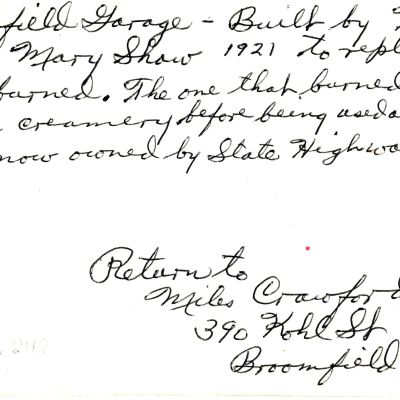 field Garage - Built by
Mary Shaw 1921 to repl
burned. The one that burned
creamery before being used a
now owned by State Highwa
Return to
Miles Crawford
390 Kohl St
Broomfield